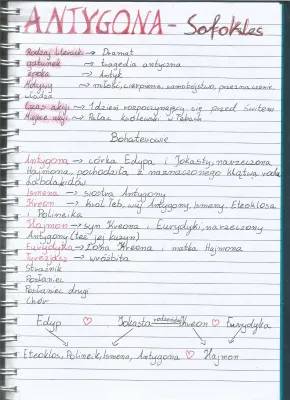 ANTYGONA - Sofokles
Rodzaj literacki → Dramat
gatunek → tragedia antyczna
Epoka → Antyk
Motywy → miłość, cierpienie, samobójstwo, przeznaczenie
władza
Czas akcji → 1 dzień rozpoczynający się przed świtem
Miejsce akcji → Pałac królewski w Tebach
Bohaterowie
Antygona → córka Edypa i Jokasty, narzeczona
Hajmona, pochodziła z naznaczonego klątwą rodu
Labdakidów
Ismena → siostra Antygony
Kreon → król Teb, wuj Antygony, Ismeny, Eteoklosa
i Polinejka
Hajmon → syn Kreona i Eurydyki, narzeczony
Antygony (też jej kuzyn)
Eurydyka → żona Kreona i matka Hajmona
Tyrezjasz → wróżbita
Strażnik
Posłaniec
Posłaniec drugi
Chór
Edyp ♡ Jokasta rodzeństwo Kreon ♡ Eurydyka
Eteoklos, Polinejk, Ismena, Antygona ♡ Hajmon